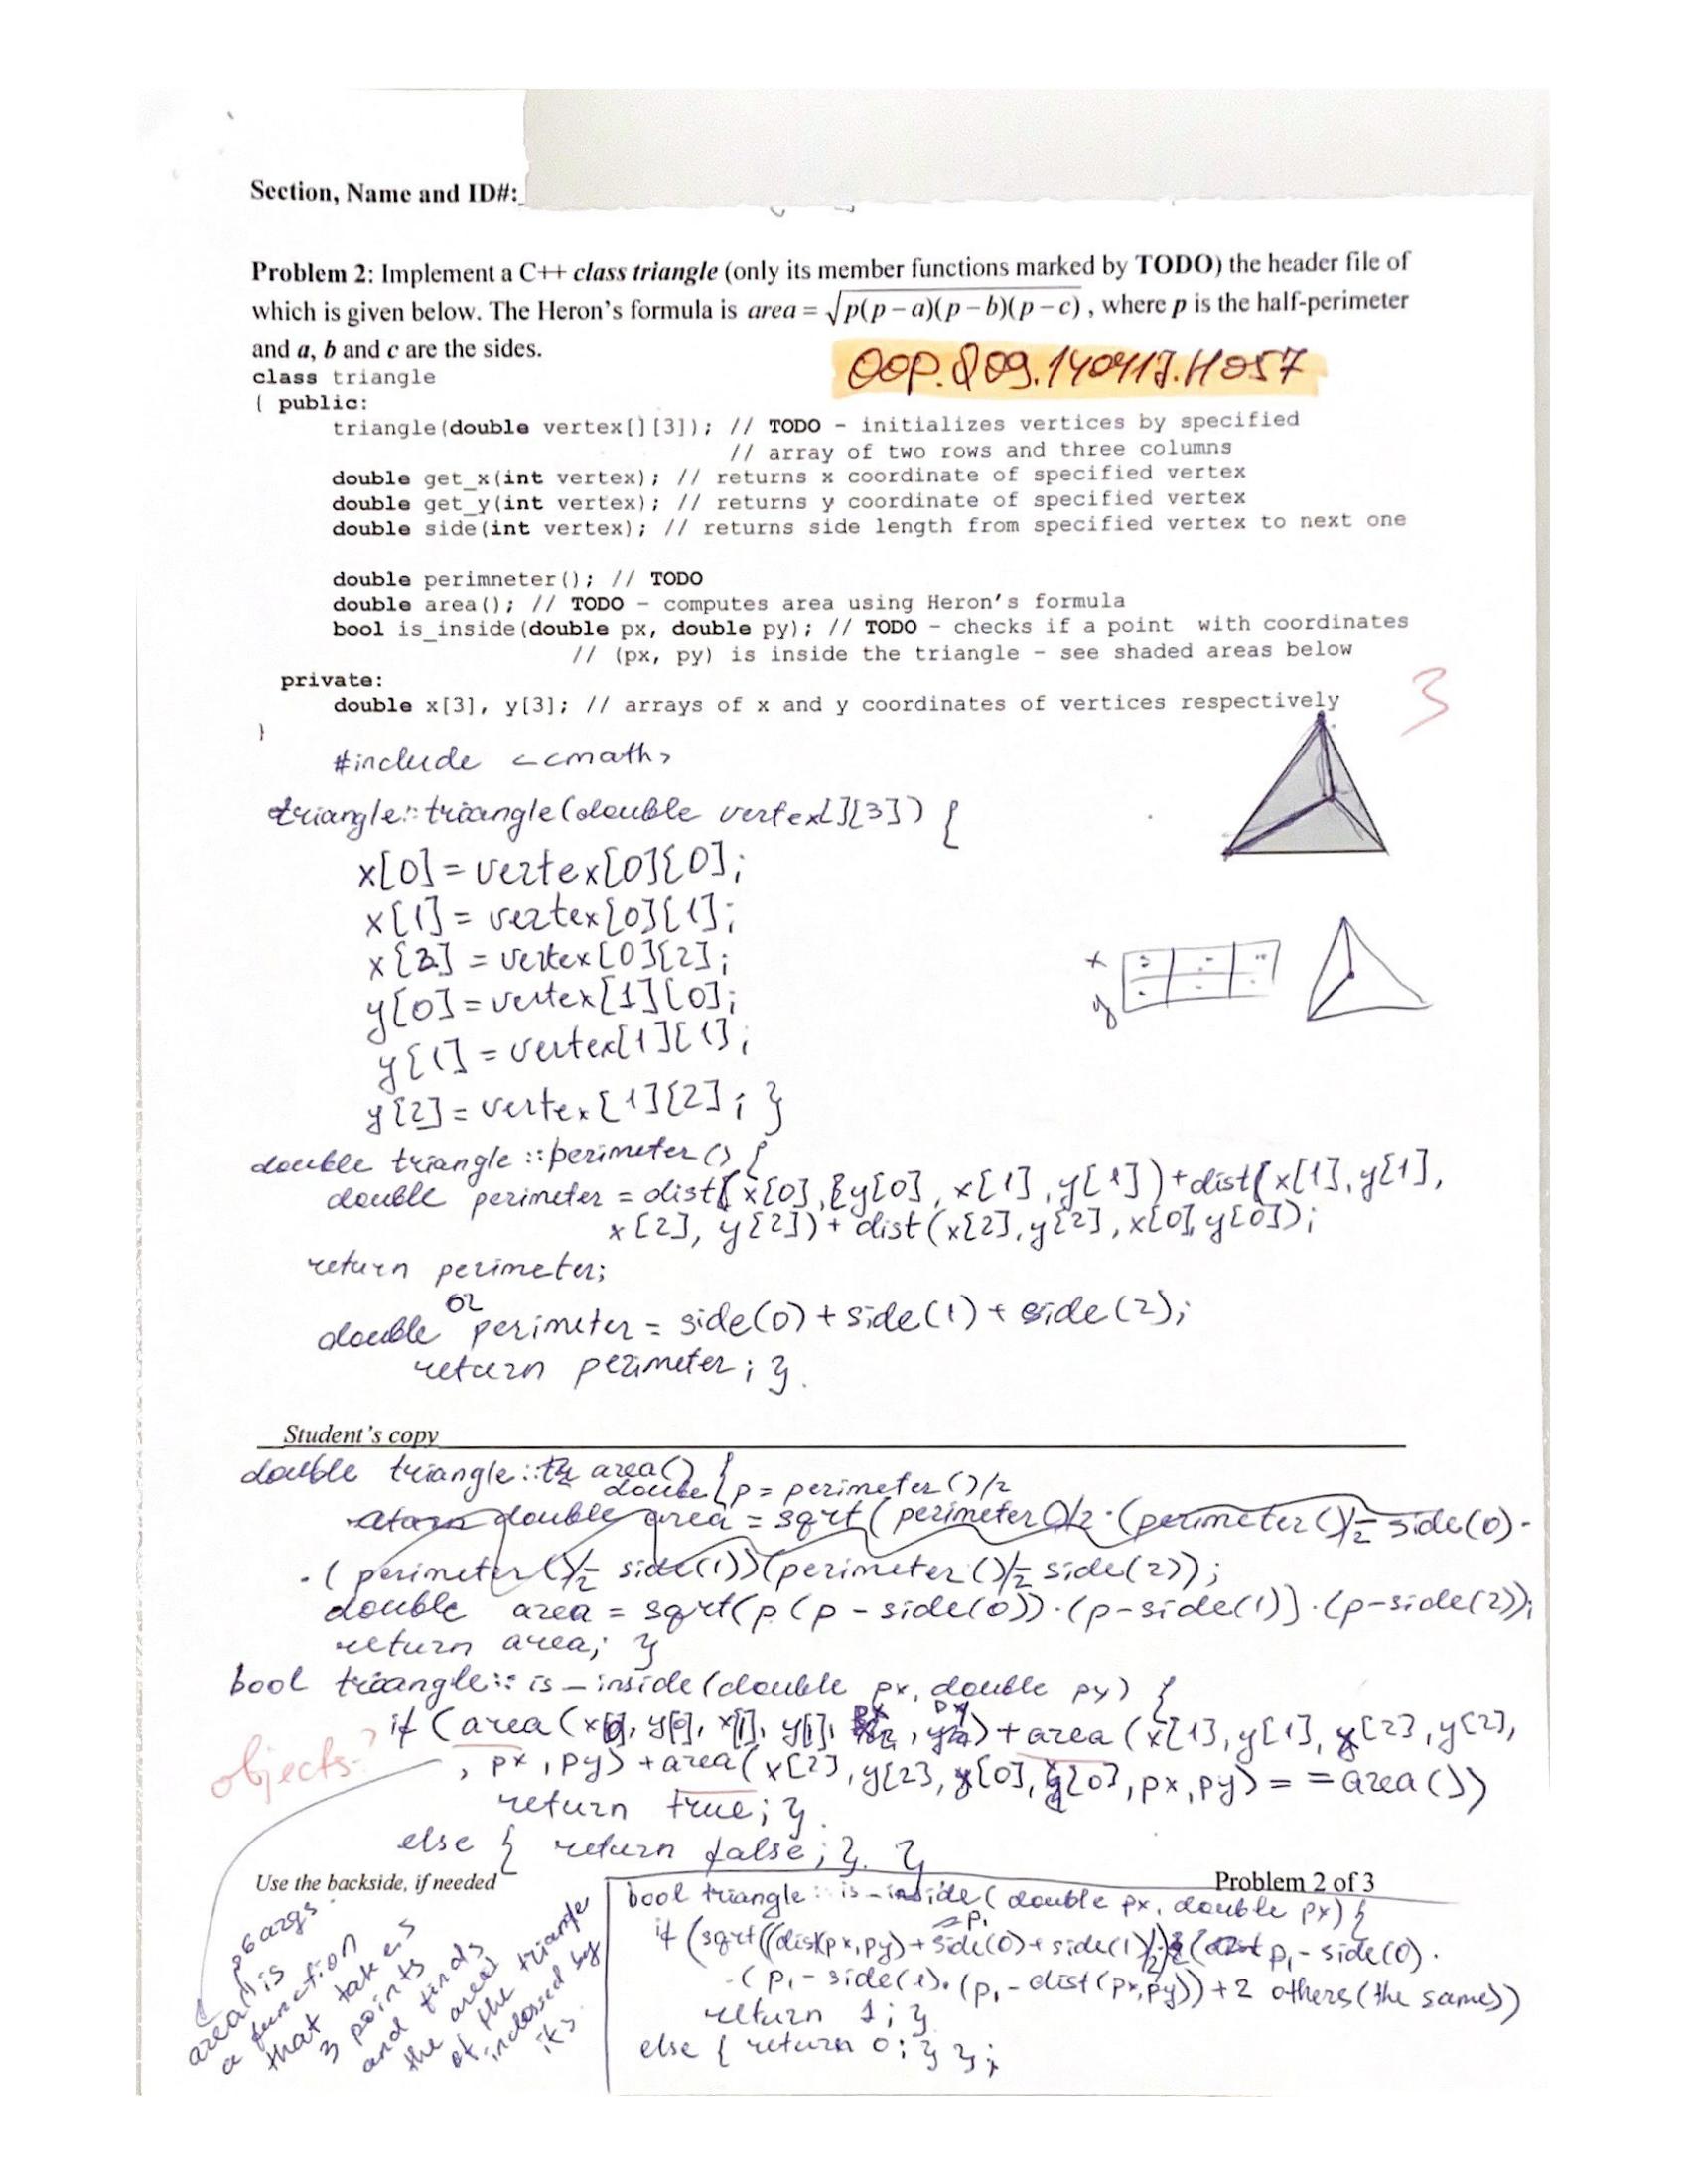 Section, Name and ID#:
Problem 2: Implement a C++ class triangle (only its member functions marked by TODO) the header file of
which is given below. The Heron's formula is area = √p(p – a)(p – b)(p – c) , where p is the half-perimeter
and a, b and c are the sides.
OOP.Q09.140417.H057
class triangle
{ public:
triangle(double vertex[][3]); // TODO - initializes vertices by specified
// array of two rows and three columns
double get_x(int vertex); // returns x coordinate of specified vertex
double get_y(int vertex); // returns y coordinate of specified vertex
double side(int vertex); // returns side length from specified vertex to next one
double perimneter(); // TODO
double area(); // TODO - computes area using Heron's formula
bool is_inside(double px, double py); // TODO - checks if a point with coordinates
// (px, py) is inside the triangle - see shaded areas below
private:
double x[3], y[3]; // arrays of x and y coordinates of vertices respectively
}
3
#include <cmath>
triangle::triangle(double vertex[][3]) {
x[0] = vertex[0][0];
x[1] = vertex[0][1];
x[2] = vertex[0][2];
y[0] = vertex[1][0];
y[1] = vertex[1][1];
y[2] = vertex[1][2]; }
x
y
double triangle::perimeter() {
double perimeter = dist(x[0], y[0], x[1], y[1]) + dist(x[1], y[1],
x[2], y[2]) + dist(x[2], y[2], x[0], y[0]);
return perimeter;
or
double perimeter = side(0) + side(1) + side(2);
return perimeter; }
Student's copy
double triangle:: area() {
double p = perimeter()/2
double area = sqrt(perimeter()/2 · (perimeter()/2 - side(0) ·
· (perimeter()/2 - side(1))(perimeter()/2 - side(2));
double area = sqrt(p (p - side(0)) · (p - side(1)) · (p - side(2));
return area; }
bool triangle:: is_inside(double px, double py) {
if (area(x[0], y[0], x[1], y[1], px, py) + area(x[1], y[1], x[2], y[2],
objects?
, px, py) + area(x[2], y[2], x[0], y[0], px, py) == area())
return true; }
else { return false; } }
Use the backside, if needed
Problem 2 of 3
6 args.
area is
a function
that takes
3 points
and finds
the area
of the triangle
inclosed by
it
bool triangle:: is_inside(double px, double px) {
= p1
if (sqrt((dist(px,py) + side(0) + side(1))/2) (p1 - side(0) ·
· (p1 - side(1) · (p1 - dist(px,py)) + 2 others (the same))
return 1; }
else { return 0; } };